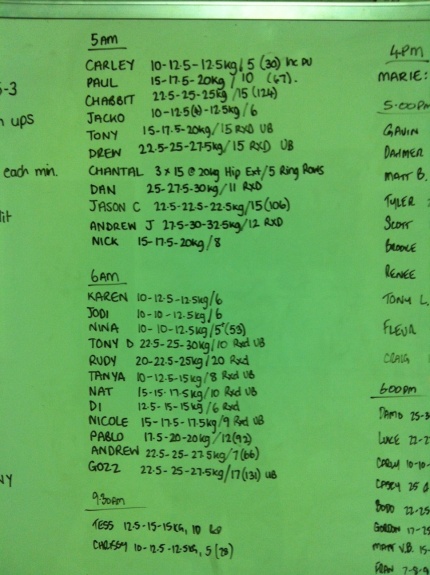 5AM
CARLEY 10-12.5-12.5kg/5 (30) Inc PU
PAUL 15-17.5-20kg/10 (67).
CHABBIT 22.5-25-25kg/15 (124)
JACKO 10-12.5(4)-12.5kg/6
TONY 15-17.5-20kg/15 RXD UB
DREW 22.5-25-27.5kg/15 RXD UB
CHANTAL 3x15 @ 20kg Hip Ext/5 Ring Rows
DAN 25-27.5-30kg/11 RXD
JASON C 22.5-22.5-22.5kg/15(106)
ANDREW J 27.5-30-32.5kg/12 RXD
NICK 15-17.5-20kg/8
6AM
KAREN 10-12.5-12.5kg/6
JODI 10-10-12.5kg/6
NINA 10-10-12.5kg/5 (53)
TONY D 22.5-25-30kg/10 Rxd UB
RUDY 20-22.5-25kg/20 Rxd
TANYA 10-12.5-15kg/8 Rxd UB
NAT 15-15-17.5kg/10 Rxd UB
DI 12.5-15-15kg/6 Rxd
NICOLE 15-17.5-17.5kg/9 Rxd UB
PABLO 17.5-20-20kg/12(92)
ANDREW 22.5-25-27.5kg/7(66)
GOZZ 22.5-25-27.5kg/17(131) UB
9:30AM
TESS 12.5-15-15KG, 10
CHRISSY 10-12.5-12.5KG, 5 (28)
-3
ups
each min.
NY
4PM
MARIE:
5:00PM
GAVIN
DAHMER
MATT B.
TYLER
SCOTT
BROOKE
RENEE
TONY L.
FLEUR
CRAIG
6:00PM
DAMO 25-3
LUKE 22-2
CARLY 10-10-
CASEY 25
BODO 22-25
GORDON 17-25
MATT V.B. 15-
FRAN 7-8-9